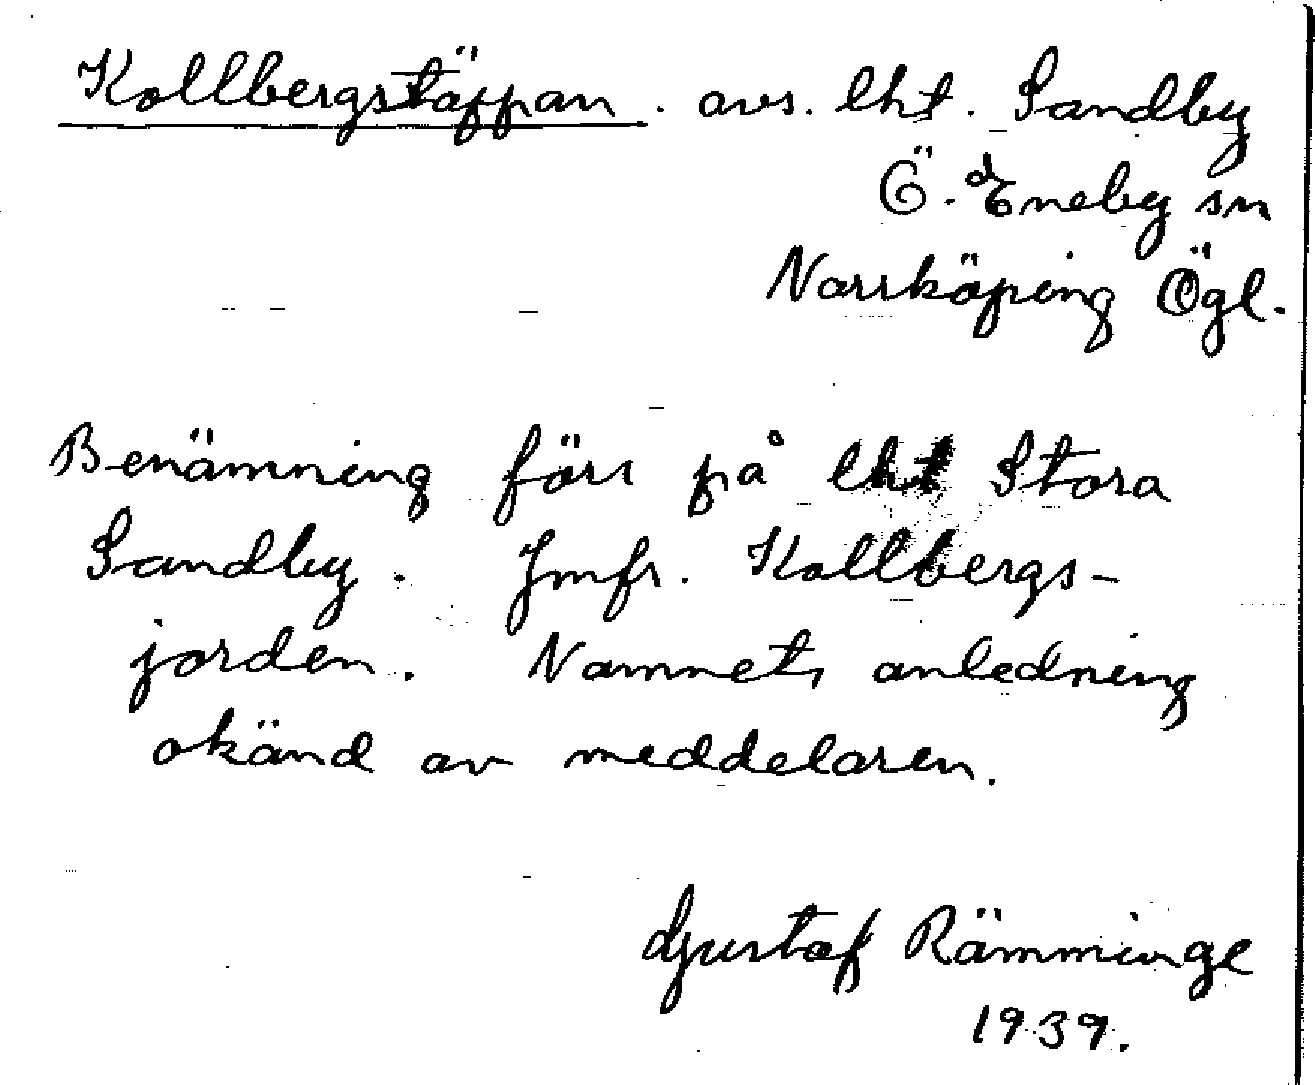 Kollbergstäppan. avs. lht. Sandby
Ö. Eneby sn
Norrköping Ögl.
Benämning förr på lht Stora
Sandby. Jmfr. Kollbergs-
jorden. Namnets anledning
okänd av meddelaren.
Gustaf Rämminge
1939.